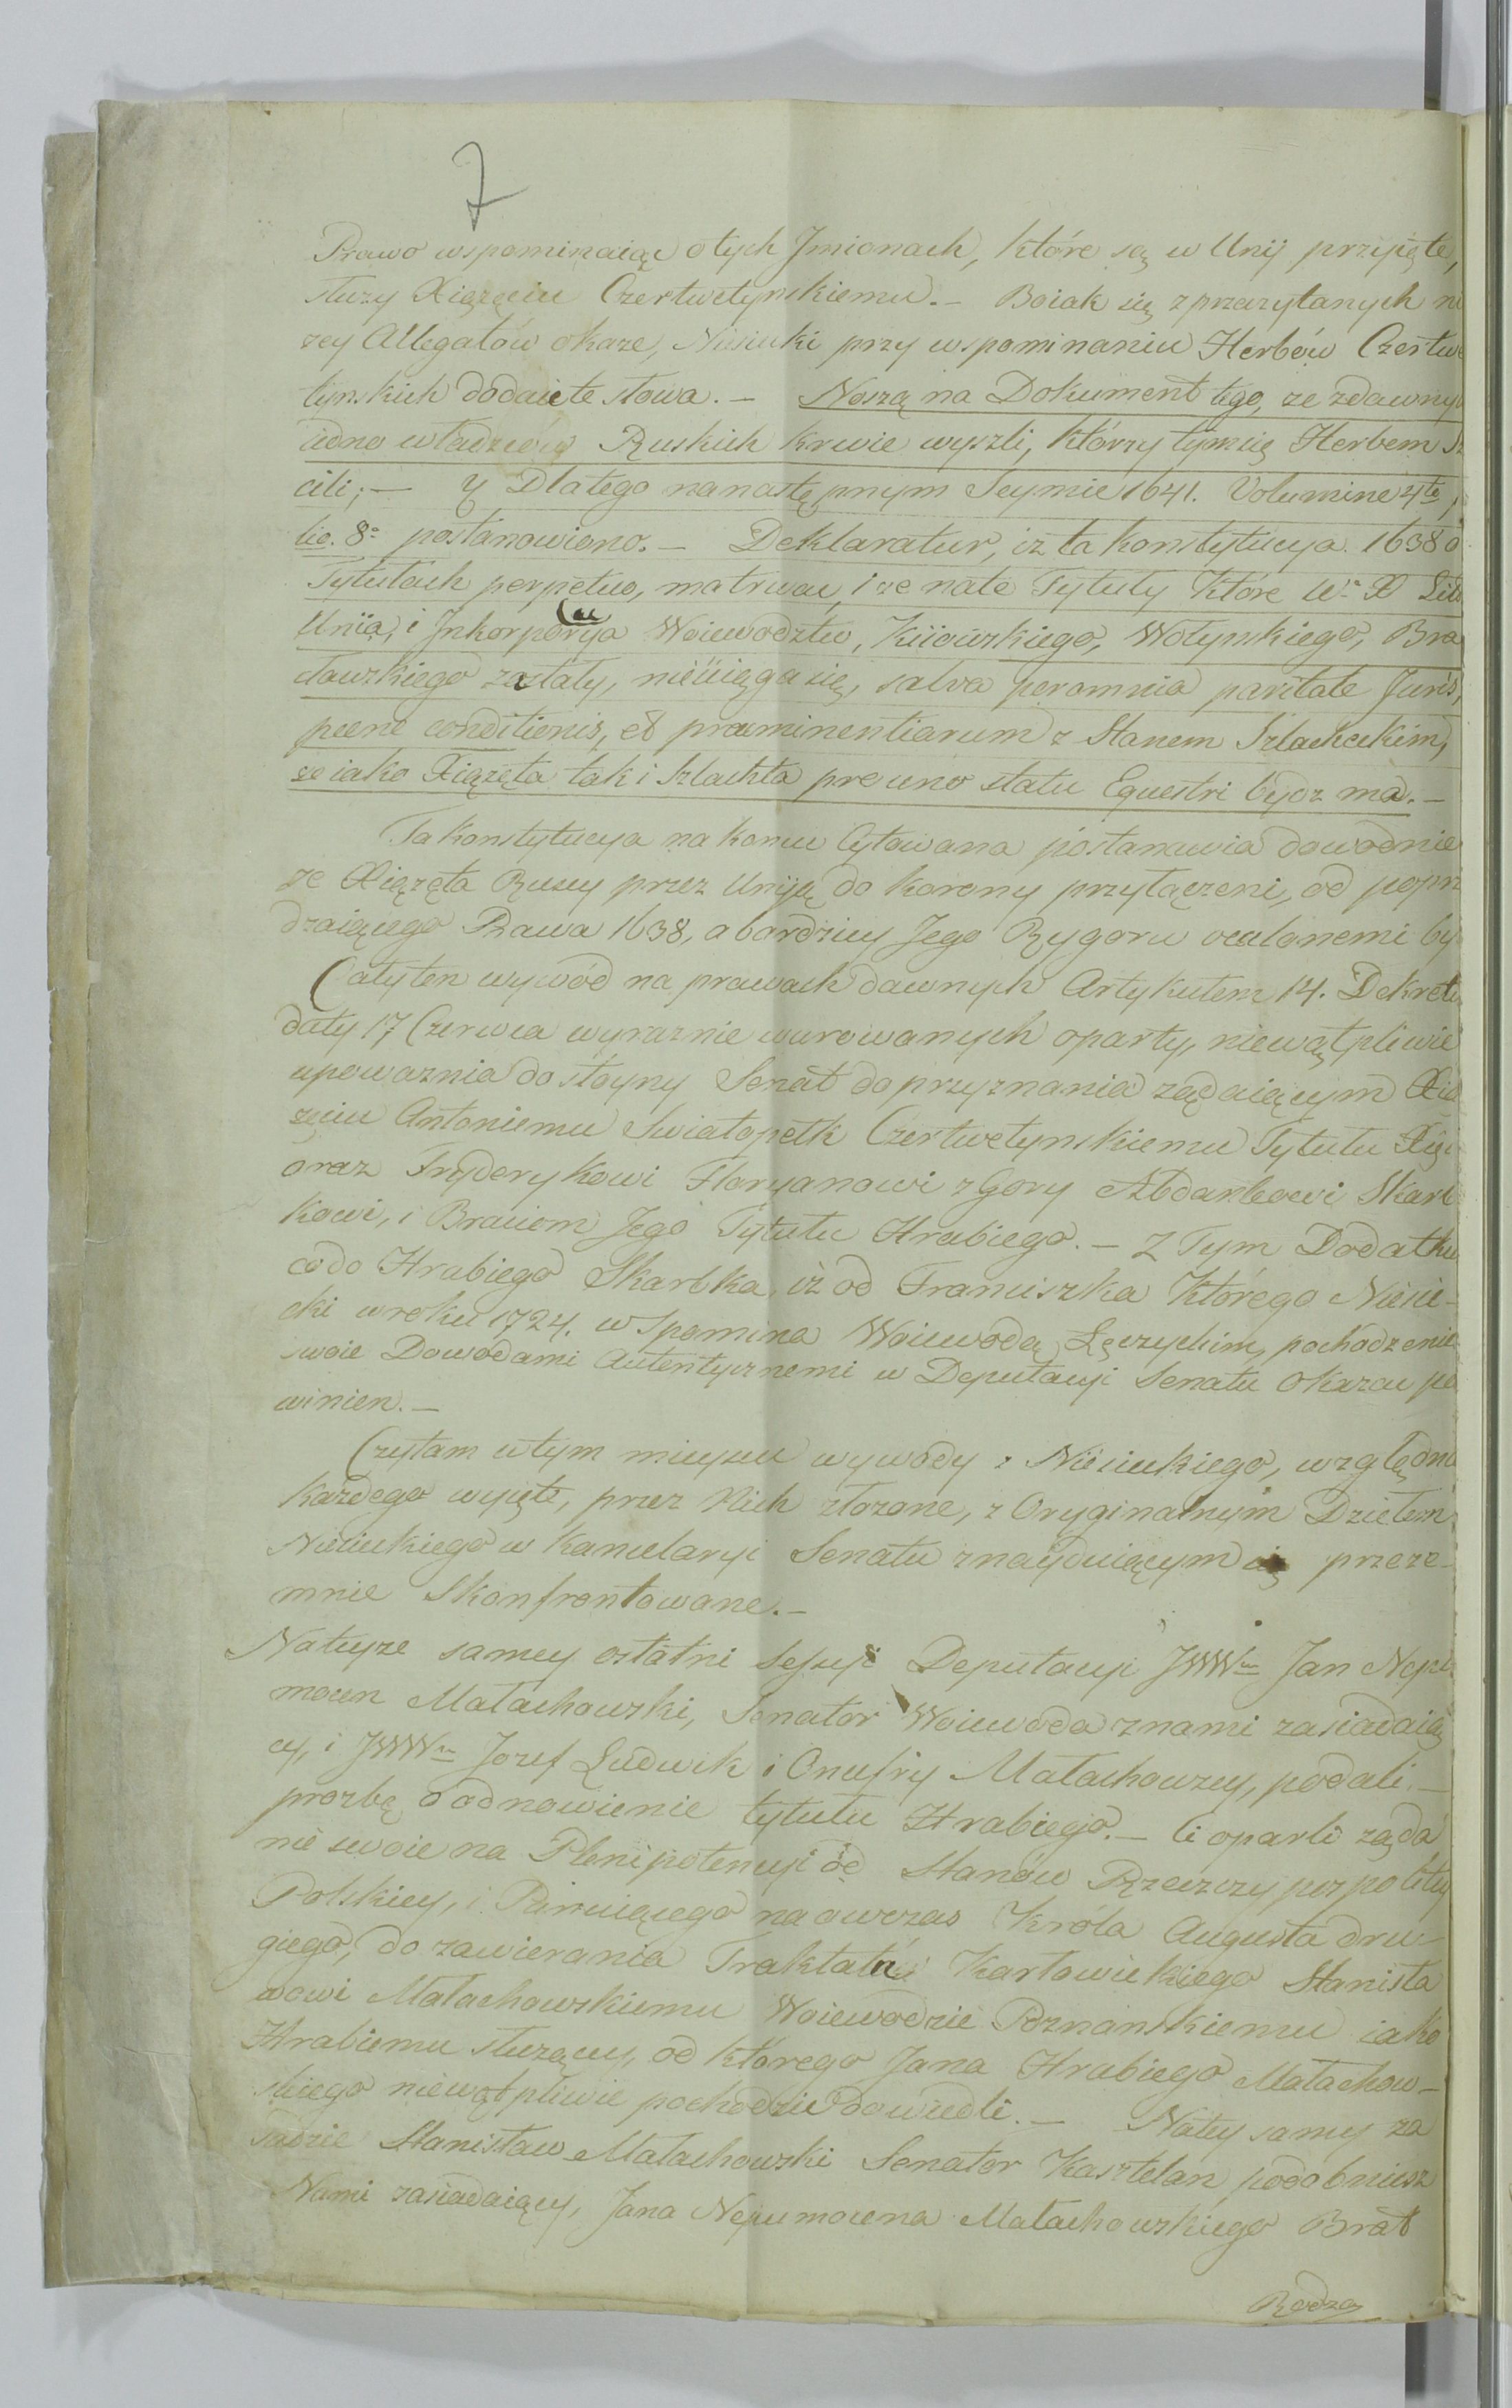 7
Prawo wspominaiąc o tych Jmionach, które są w Unij przyięte,
służy Xiążęciu Czertwetynskiemu. – Bo iak się z przeczytanych ni
żey Allegatów okaże, Niesiecki przy wspominaniu Herbów Czertwe
tynskich dodaie te słowa. – Noszą na Dokument tego, że zdawnych
iedno władzców Ruskich krwie wyszli, którzy tym się Herbem Sz
cili; – y Dlatego na nastę pnym Seymie 1641. Volumine 4to,
lio. 8o postanowiono. – Deklaratur, iż ta konstytucya 1638 o
Tytułach perpetuo, ma trwać, i że na te Tytuły które w X Lit
Uniią, i Jnkorporacya Woiewodztw, Kiiowskiego, Wołynskiego, Bra
cławskiego zostały, nieściąga się, salva per omnia paritate Juris,
peene conditionis, et preeminentiarum z Stanem Szlacheckim,
że iako Xiążęta tak i Szlachta pro uno statu Equestri bydz ma. –
Ta Konstytucya na koncu Cytowana postanawia dowodnie
że Xiążęta Ruscy przez Uniją do Korony przyłączeni, od poprz
dzaiącego Prawa 1638, a bardziey Jego Rygoru ocalonemi by
Cały ten wywód na prawach dawnych Artykułem 14. Dekretu
daty 17 Czerwca wyraznie warowanych oparty, niewątpliwie
upoważnia dostoyny Senat do przyznania żądaiącym Xią
żęciu Antoniemu Swiatopełk Czertwetynskiemu Tytułu Xięci
oraz Fryderykowi Floryanowi z Gory Abdankowi Skarb
kowi, i Braciom Jego Tytułu Hrabiego. – Z Tym Dodatku
co do Hrabiego Skarbka, iż od Franciszka Którego Niesie-
cki w roku 1724. wspomina Woiewodą Łęczyckim, pochodzenie
swoie Dowodami Autentycznemi w Deputacyi Senatu okazać po
winien. –
Czytam w tym mieyscu wywody z Niesieckiego, względna
każdego wyięte, przez Nich złożone, z Oryginalnym Dziełem
Niesieckiego w Kancelaryi Senatu znayduiącym się przeze-
mnie Skonfrontowane. –
Na teyże samey ostatni Sessyi Deputacyi JWWn Jan Nepo
mocen Małachowski, Senator Woiewoda z nami zasiadaią
cy, i JWWn Jozef Ludwik i Onufry Małachowscy, podali –
prozbę o odnowienie tytułu Hrabiego. – Ci oparli żąda
nie swoie na Plenipotencyi od Stanów Rzeczypospolitey
Polskiey, i Panuiącego na owczas Króla Augusta dru-
giego, do zawierania Traktatu Karłowickiego Stanisła
wowi Małachowskiemu Woiewodzie Poznanskiemu iako
Hrabiemu służącey, od którego Jana Hrabiego Małachow-
skiego niewątpliwie pochodzić dowiedli. – Na tey samey za
sadzie Stanisław Małachowski Senator Kasztelan podobniesz
Nami zasiadaiący, Jana Nepumocena Małachowskiego Brat
Rodzo